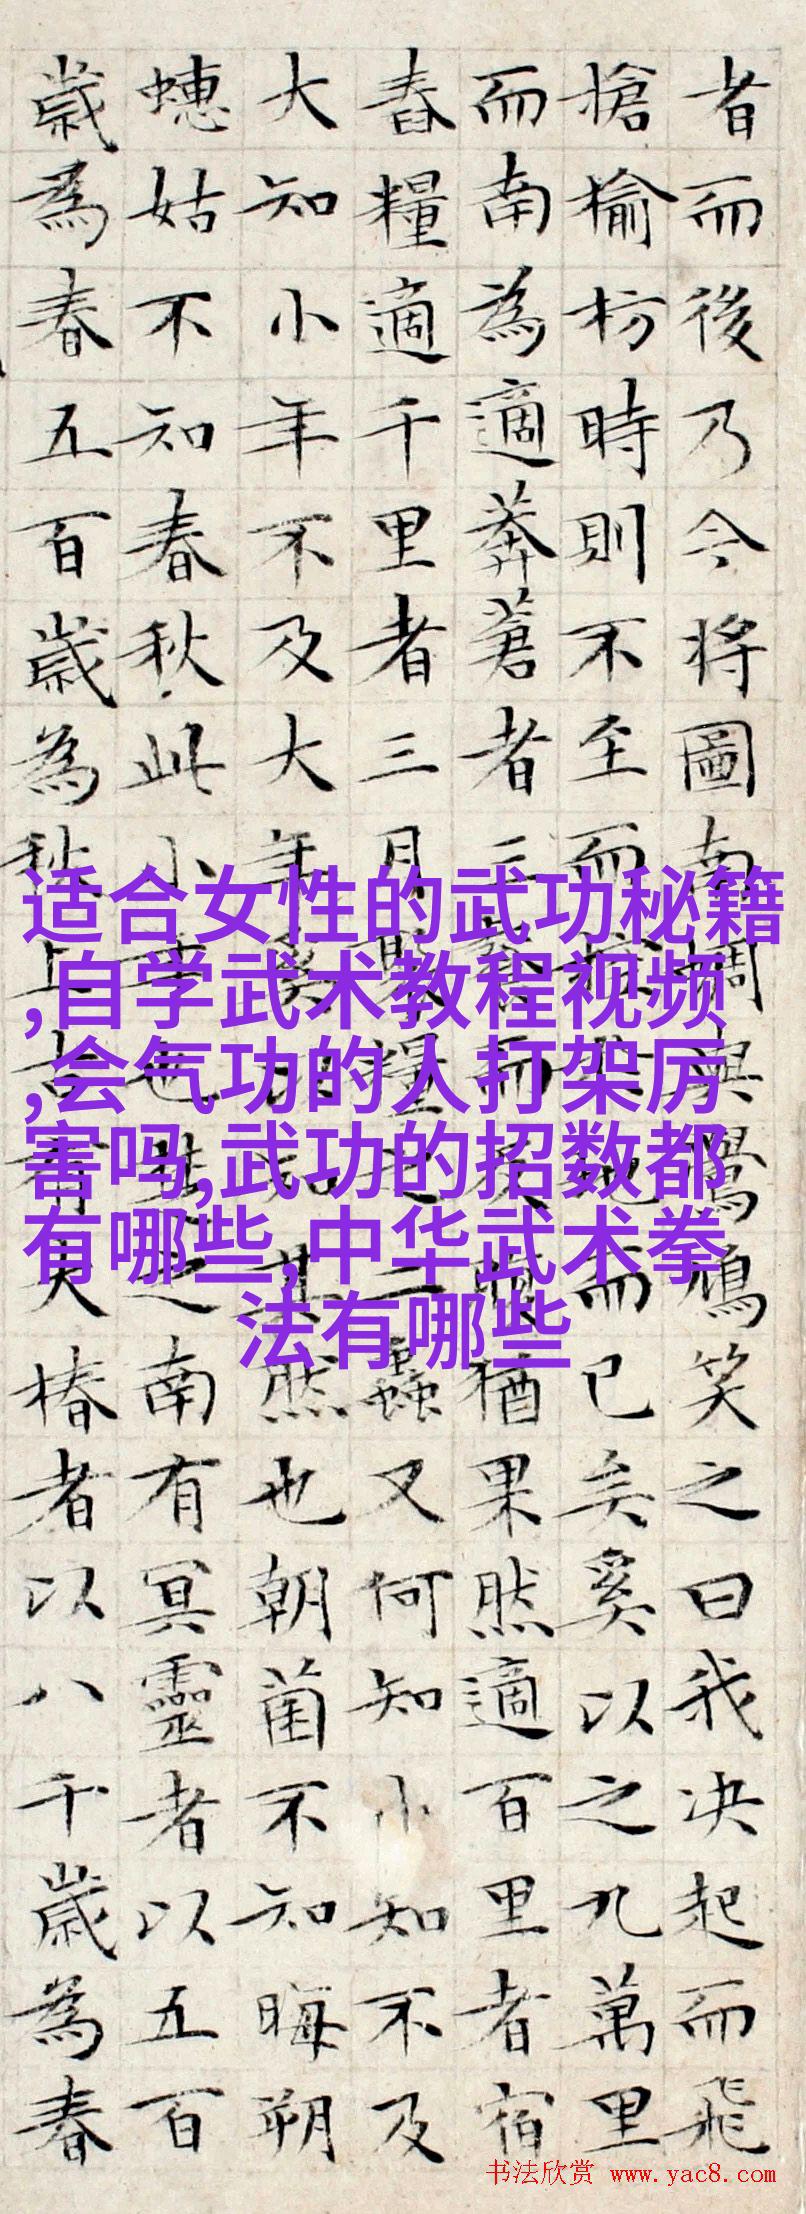 者而後乃今将圖南蜩與鷽鳩笑之曰我决起而飛
槍榆枋時則不至而控於地而已矣奚以之九萬里
而南為適莽蒼者三餐而反腹猶果然適百里者宿
舂糧適千里者三月聚糧之二蟲又何知小知不及
大知小年不及大年奚以知其然也朝菌不知晦朔
蟪姑不知春秋此小年也楚之南有冥靈者以五百
歲為春五百歲為秋上古有大椿者以八千歲為春
适合女性的武功秘籍
,自学武术教程视频
,会气功的人打架厉
害吗,武功的招数都
有哪些,中华武术拳
法有哪些
书法欣赏 www.yac8.com